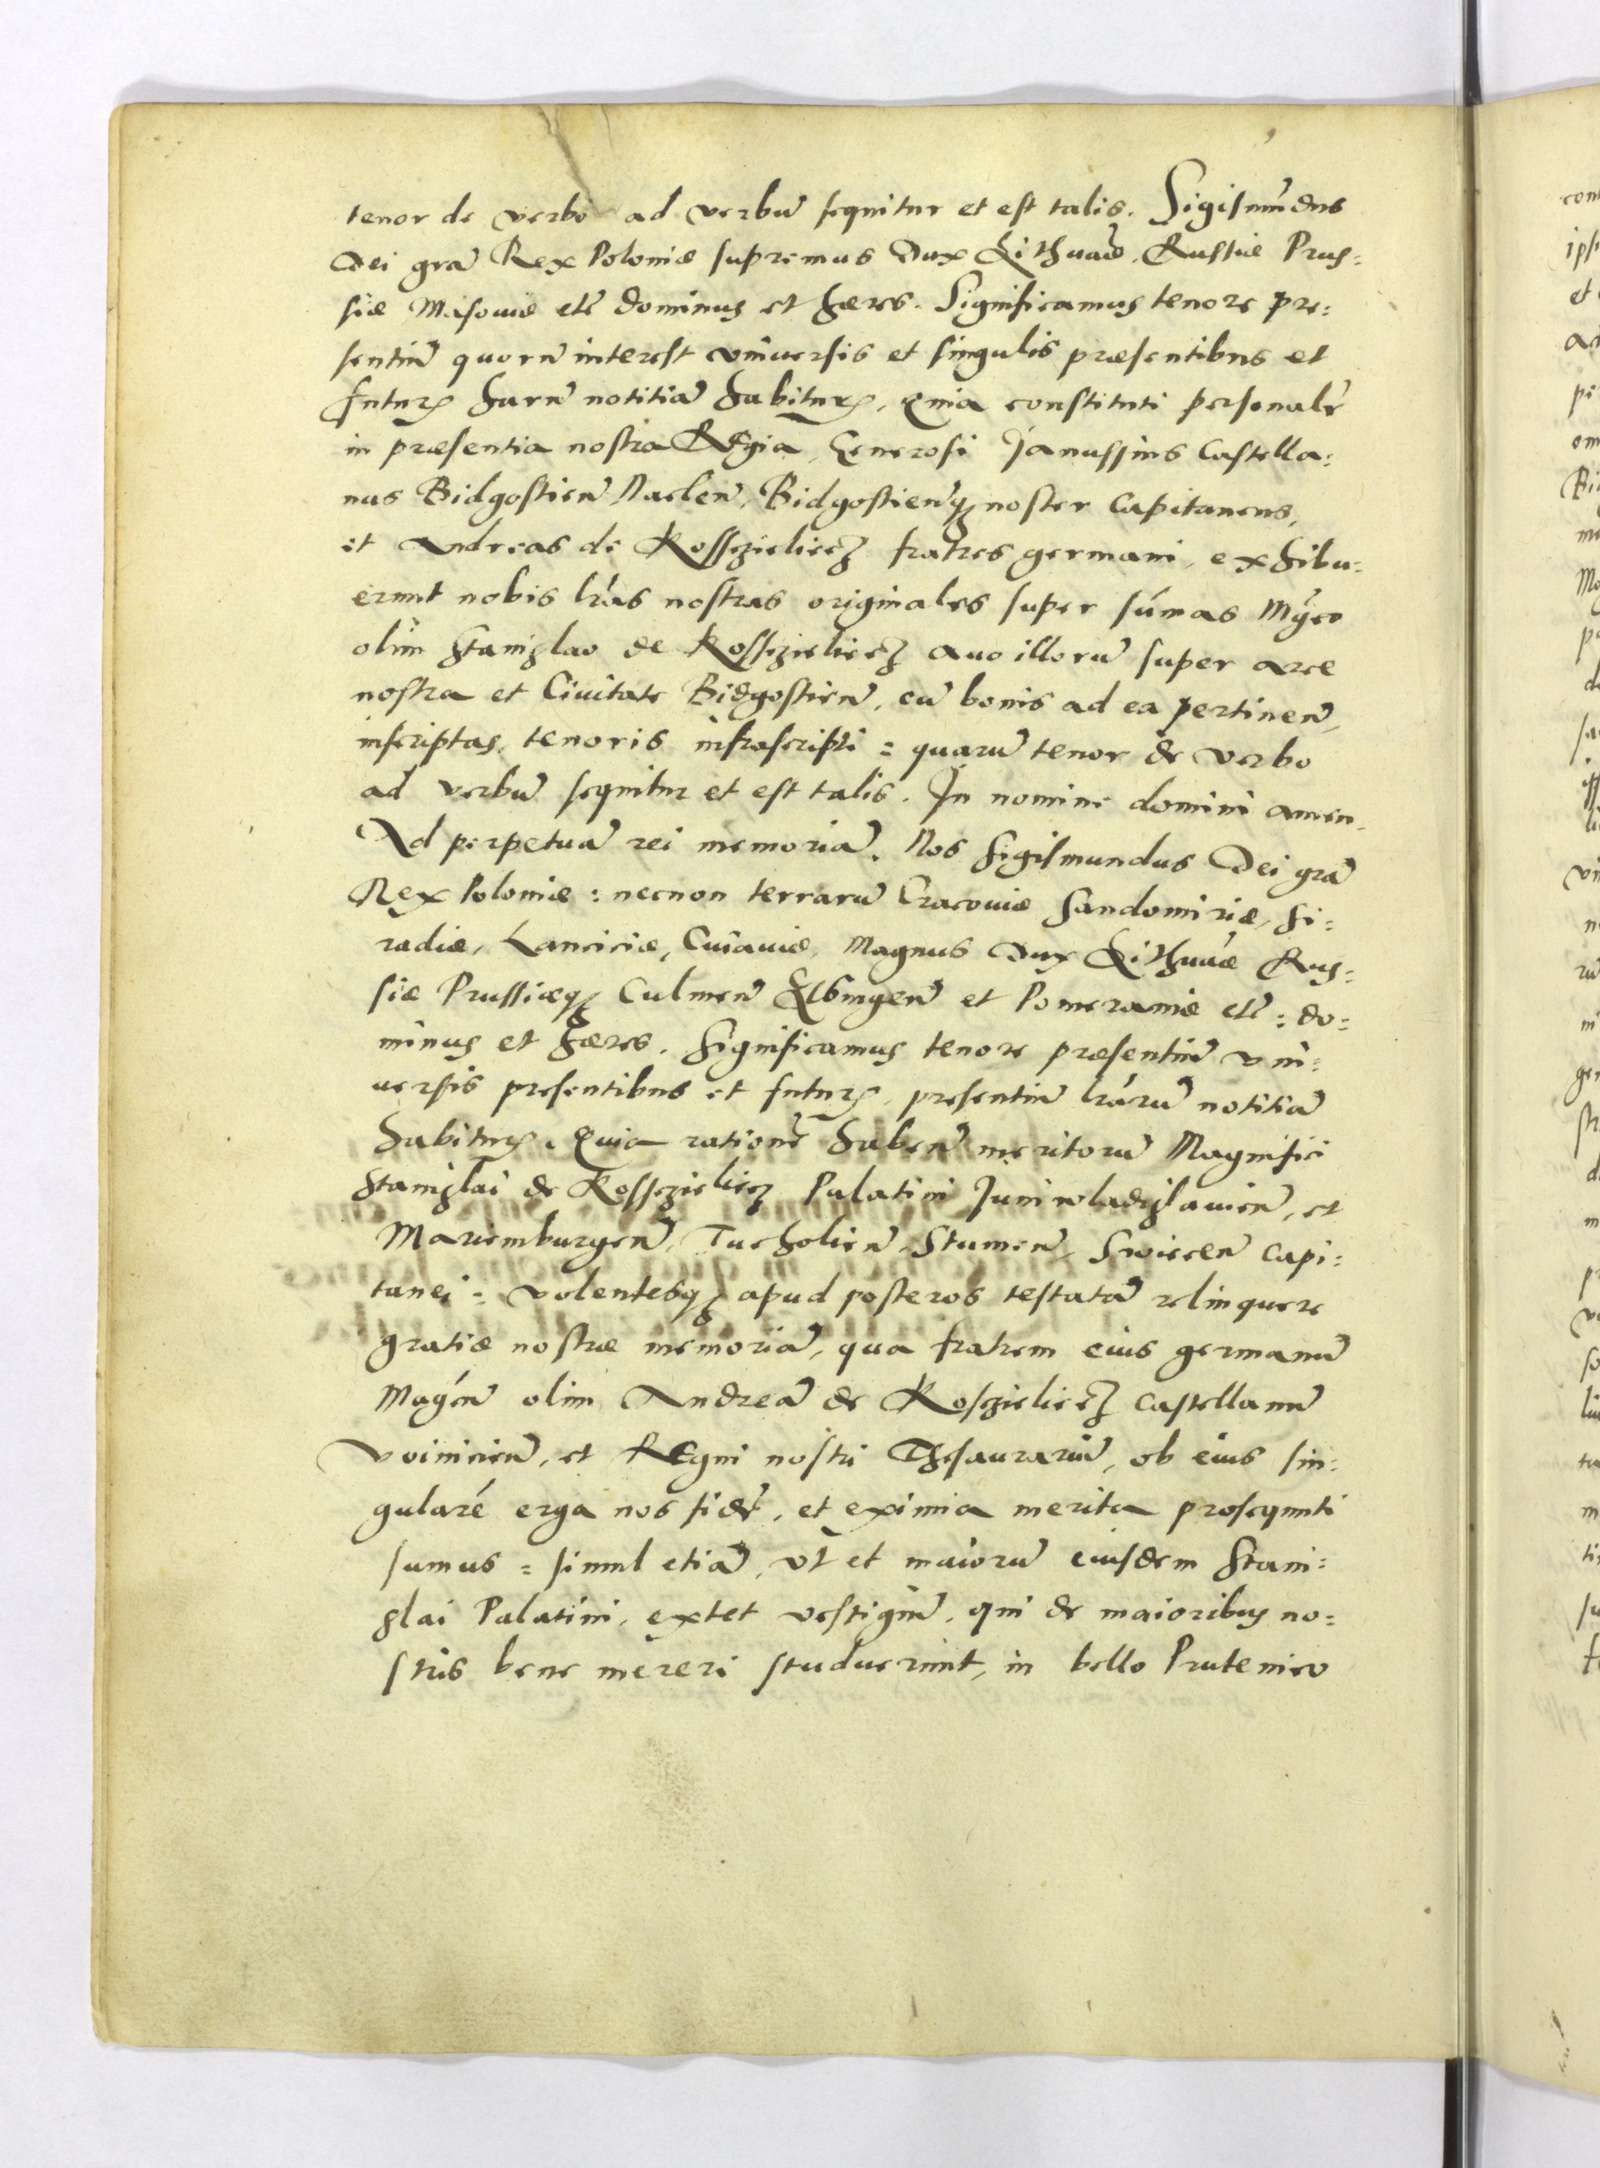 tenor de verbo ad verbũ sequitur et est talis. Sigismũdus
Dei grã Rex Poloniæ supremus Dux Lithuaniæ, Russiæ Prus:
siæ Masouiæ etc̃ dominus et hæres. Significamus tenore pre:
sentiũ quorũ interest vniuersis et singulis præsentibus et
futuris harũ notitiã habituris, quia constituti personalr̃
in præsentia nostra Regia, Generosi Janussius Castella:
nus Bidgostieñ Nacleñ, Bidgostieñq̃ noster Capitaneus,
et Andreas de Kossczieliecz fratres germani, exhibu:
erunt nobis lr̃as nostras originales super sũmas Mg̃co
olim Stanislao de Kossczieliecz auo illorũ super arce
nostra et Ciuitate Bidgostieñ, cũ bonis ad ea pertineñ,
inscriptas, tenoris infrascripti: quarũ tenor de verbo
ad verbũ sequitur et est talis. In nomine domini amen.
Ad perpetuã rei memoriã. Nos Sigismundus Dei grã
Rex Poloniæ: necnon terrarũ Cracouiæ Sandomiriæ, Si:
radiæ, Lanciciæ, Cuiauiæ, Magnus Dux Lithuañiæ Rus:
siæ Prussiæq̃ Culmeñ Elbingeñ et Pomeraniæ etc̃: do:
minus et hæres. Significamus tenore præsentiũ vni:
uersis presentibus et futuris, presentiũ lr̃arũ notitiã
habituris. Quia rationẽ habeñ meritorũ Magnifici
Stanislai de Kossczieliecz Palatini Juniwladislauieñ, et
Mariemburgeñ, Tucholieñ, Stumeñ, Swieceñ Capi:
tanei: volentesq̃ apud posteros testatã relinquere
gratiæ nostræ memoriã, qua fratrem eius germanũ
Mag̃cũ olim Andreã de Kosczieliecz Castellanũ
Voinicieñ, et Regni nostri Thesaurariũ, ob eius sin:
gularẽ erga nos fidẽ, et eximia merita prosequuti
sumus: simul etiã, vt et maiorũ eiusdem Stani:
slai Palatini, extet vestigiũ, qui de maioribus no:
stris bene mereri studuerunt, in bello Prutenico